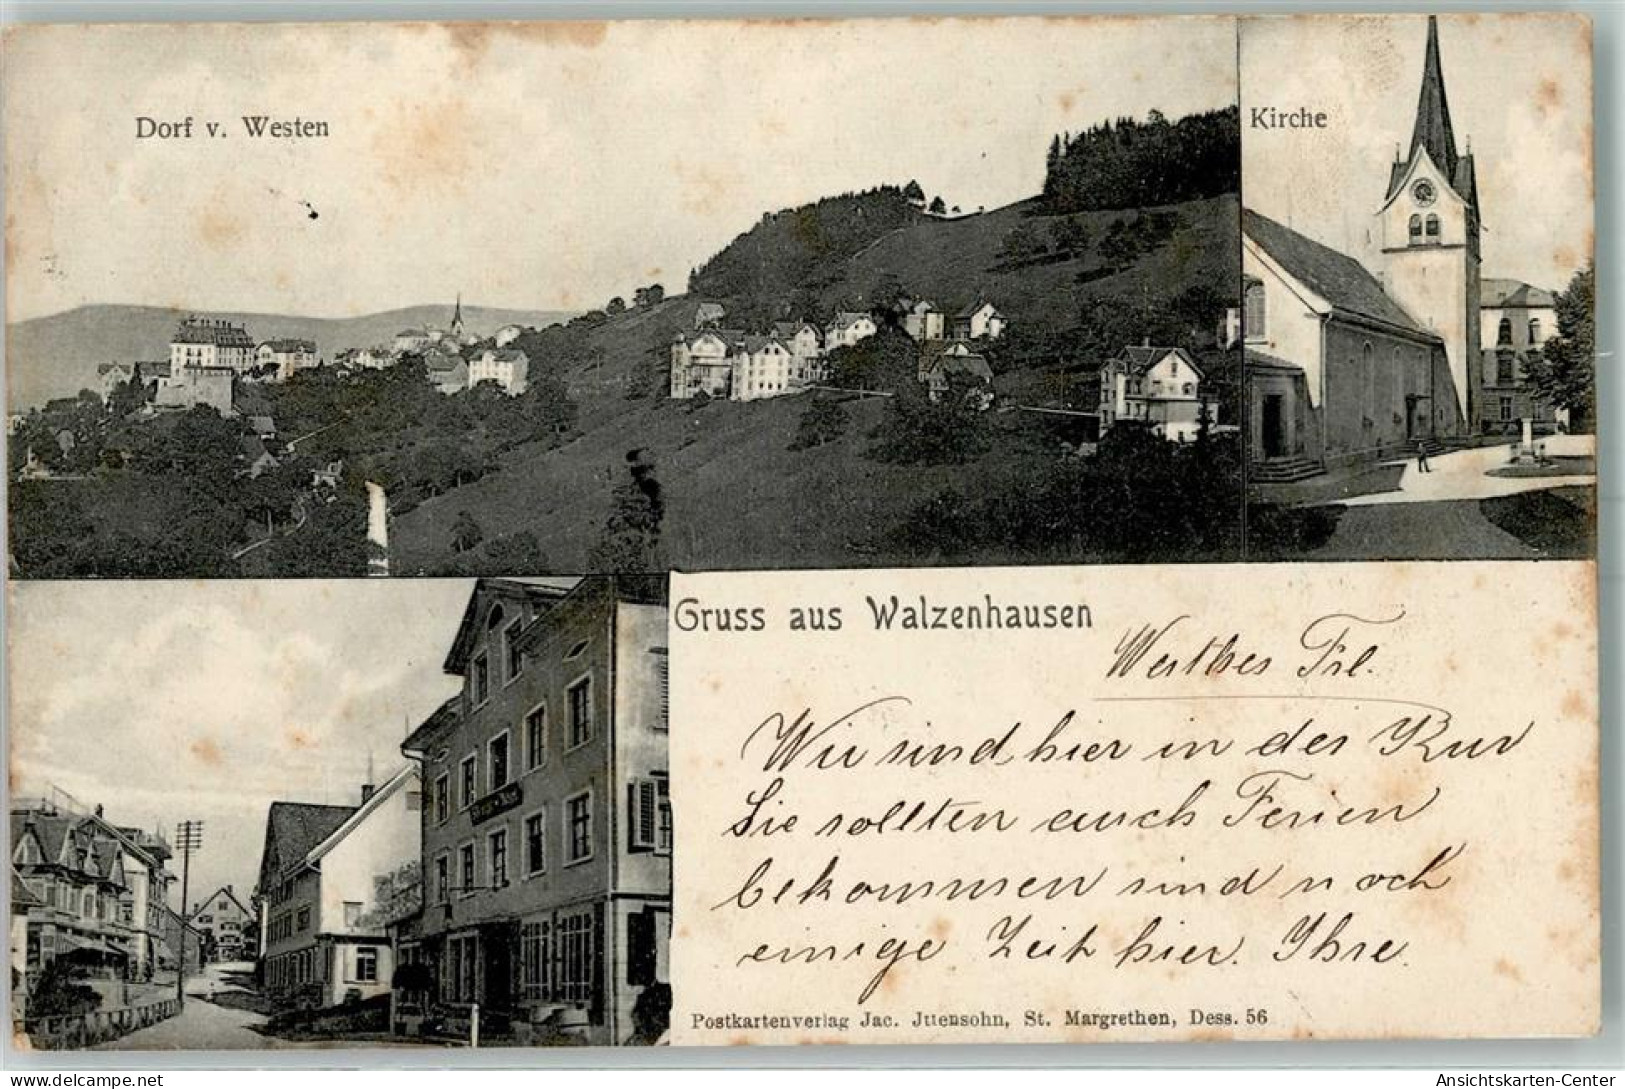 Dorf v. Westen
Kirche
Gruss aus Walzenhausen
Werthes Frl.
Wir sind hier in der Kur
Sie sollten auch Ferien
bekommen sind noch
einige Zeit hier. Ihre
Postkartenverlag Jac. Jttensohn, St. Margrethen, Dess. 56
Ansichtskarten-Center
delcampe.net